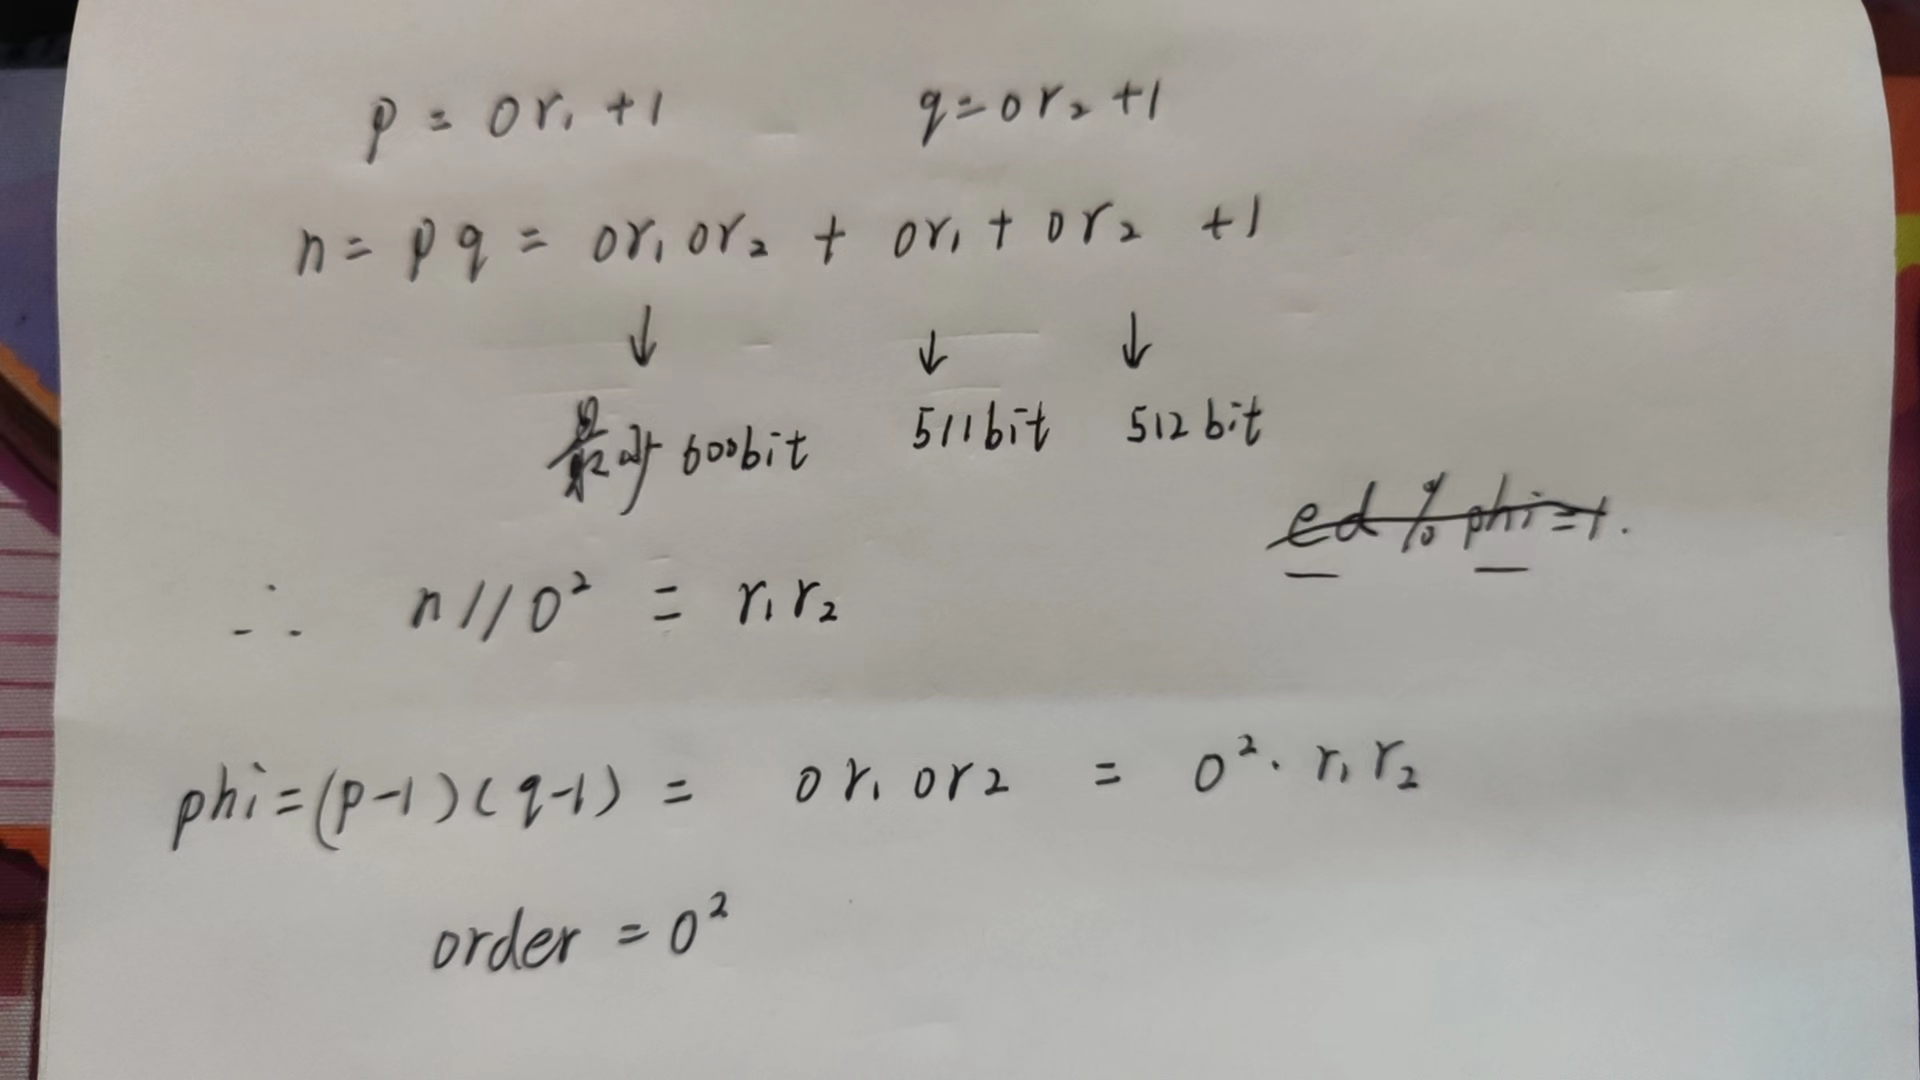 p = or₁ +1 q=or₂ +1
n= pq = or₁ or₂ + or₁ + or₂ +1
↓ ↓ ↓
最少 600bit 511bit 512bit
ed % phi=1.
∴ n//o² = r₁r₂
phi=(p-1)(q-1) = or₁ or2 = o²· r₁r₂
order = o²